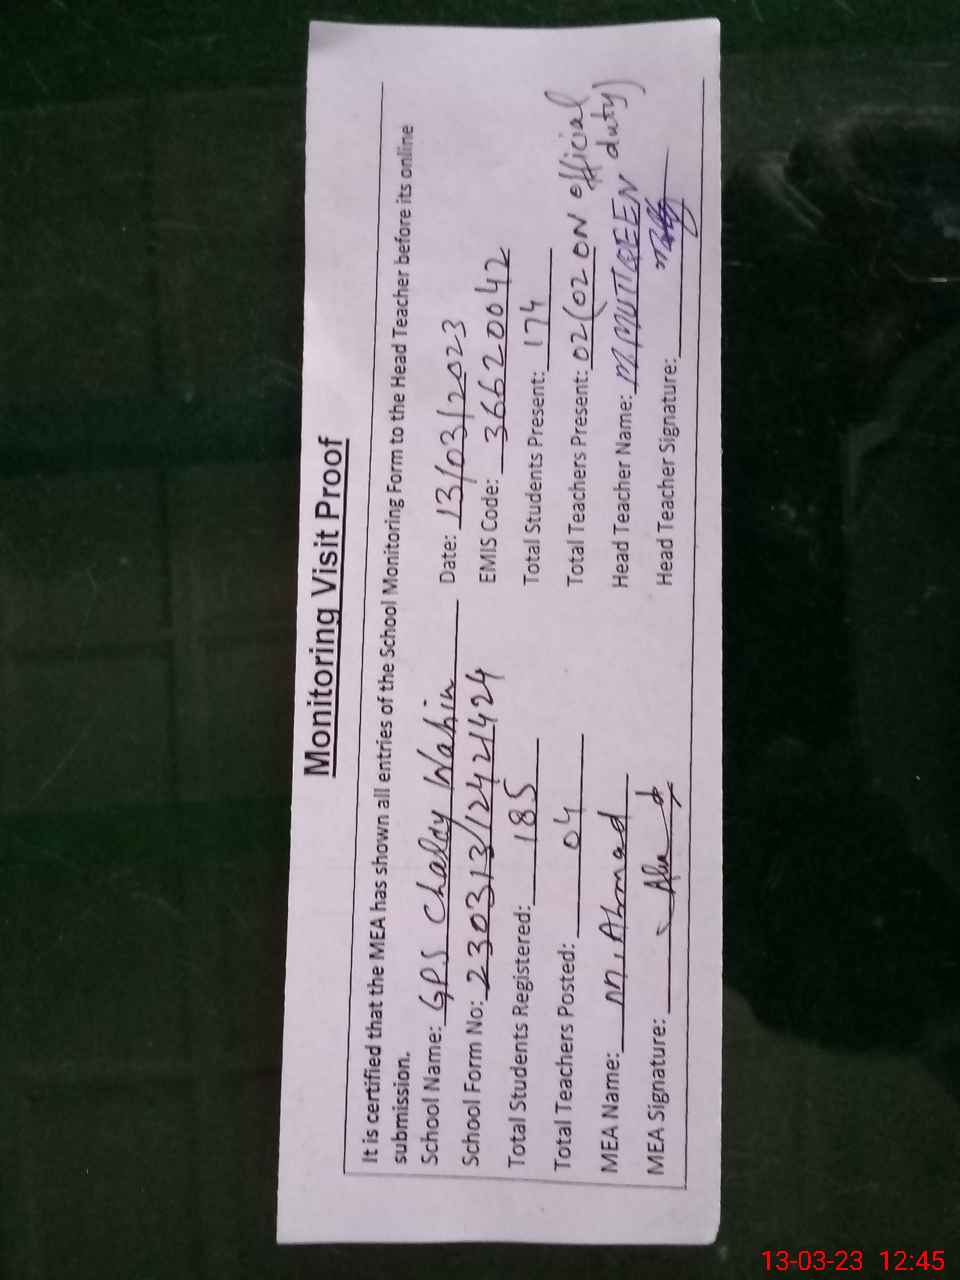 Monitoring Visit Proof
It is certified that the MEA has shown all entries of the School Monitoring Form to the Head Teacher before its online
submission.
School Name: GPS Chaldy Wahin Date: 13/03/2023
School Form No: 230313/12421424 EMIS Code: 36620042
Total Students Registered: 185 Total Students Present: 174
Total Teachers Posted: 04 Total Teachers Present: 02 (02 ON official
duty)
MEA Name: M. Ahmad Head Teacher Name: M. MUTTQEEN
MEA Signature: Head Teacher Signature:
13-03-23 12:45